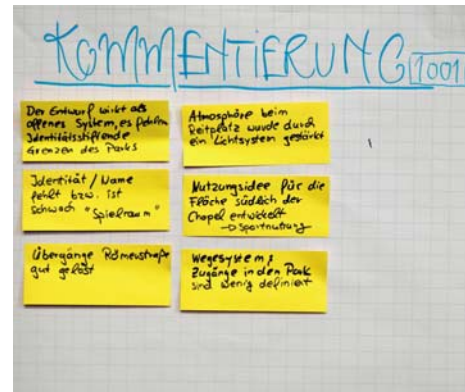 KOMMENTIERUNG 1001
Der Entwurf wirkt als
offenes System, es fehlen
Identitätsstiftende
Grenzen des Parks
Identität / Name
fehlt bzw. ist
schwach "Spielraum"
Übergänge Römerstraße
gut gelöst
Atmosphäre beim
Reitplatz wurde durch
ein Lichtsystem gestärkt
Nutzungsidee für die
Fläche südlich der
Chapel entwickelt
→ Sportnutzung
Wegesystem;
Zugänge in den Park
sind wenig definiert